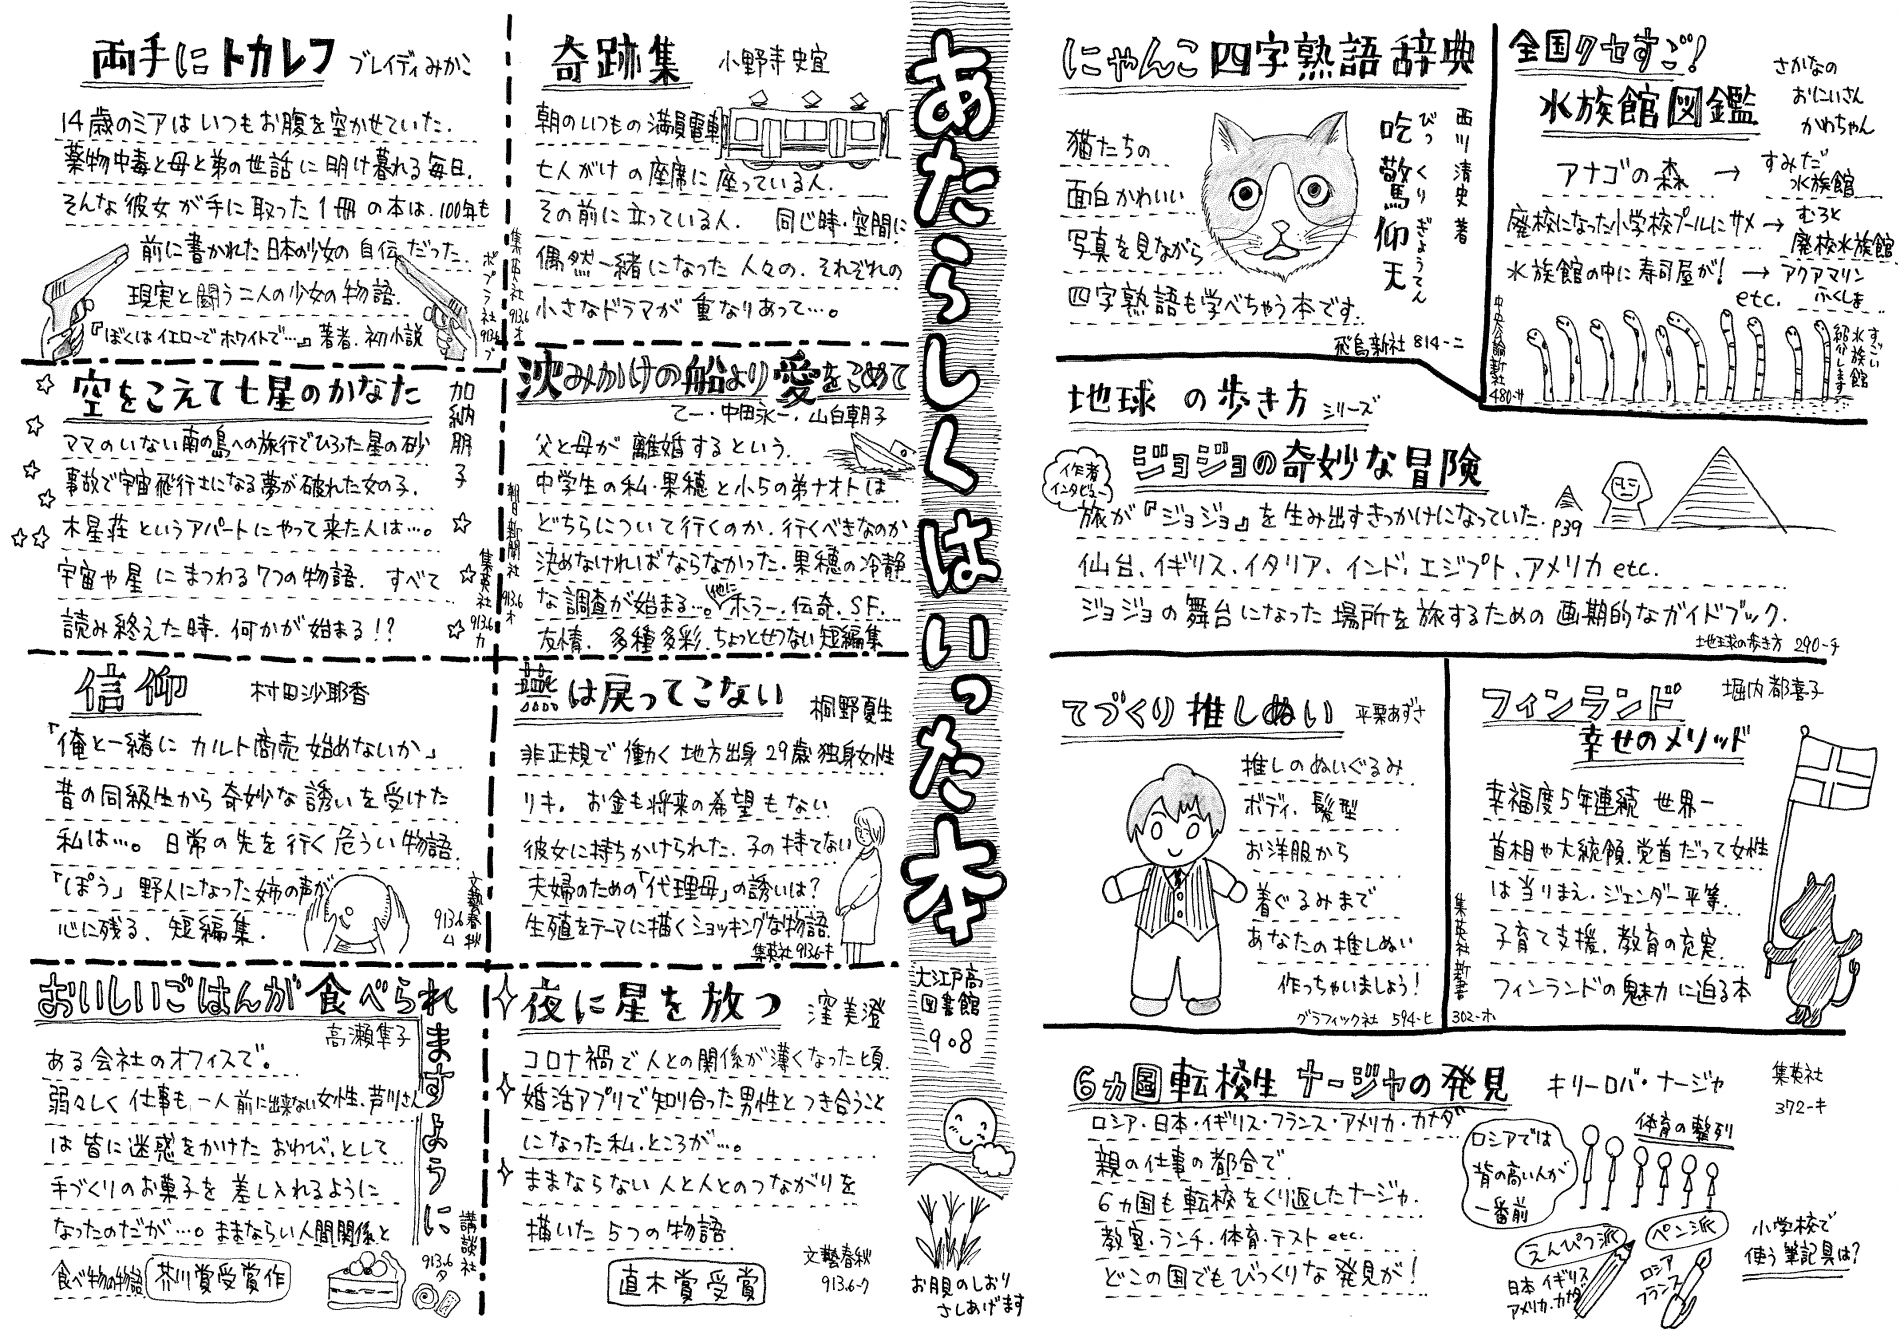 あたらしくはいった本
大江戸高
図書館
9.8
お月見のしおり
さしあげます
奇跡集
小野寺史宜
朝のいつもの満員電車
七人がけの座席に座っている人.
その前に立っている人. 同じ時・空間に
偶然一緒になった人々の.それぞれの
小さなドラマが重なりあって…。
集英社 913.6オ
両手にトカレフ ブレイディみかこ
14歳のミアはいつもお腹を空かせていた.
薬物中毒と母と弟の世話に明け暮れる毎日.
そんな彼女が手に取った1冊の本は.100年も
前に書かれた日本の少女の自伝だった.
現実と闘う二人の少女の物語.
『ぼくはイエローでホワイトで…』著者.初小説
ポプラ社 913.6ブ
沈みかけの船より愛をこめて
乙一・中田永一・山白朝子
父と母が離婚するという.
中学生の私・果穂と小5の弟ナオトは
どちらについて行くのか.行くべきなのか
決めなければならなかった.果穂の冷静
な調査が始まる…。他にホラー.伝奇.SF.
友情.多種多彩.ちょっとせつない短編集
朝日新聞社 913.6オ
空をこえて七星のかなた
加納朋子
ママのいない南の島への旅行でひろった星の砂
事故で宇宙飛行士になる夢が破れた女の子.
木星荘というアパートにやって来た人は…。
宇宙や星にまつわる7つの物語. すべて
読み終えた時.何かが始まる!?
集英社 913.6カ
燕は戻ってこない 桐野夏生
非正規で働く地方出身29歳独身女性
リキ。お金も将来の希望もない
彼女に持ちかけられた.子の持てない
夫婦のための「代理母」の誘いは?
生殖をテーマに描くショッキングな物語.
集英社 913.6キ
信仰
村田沙耶香
「俺と一緒にカルト商売始めないか」
昔の同級生から奇妙な誘いを受けた
私は…。日常の先を行く危うい物語.
「ぽう」野人になった姉の声が
心に残る.短編集.
文藝春秋
913.6
ム
夜に星を放つ 窪美澄
コロナ禍で人との関係が薄くなった頃.
婚活アプリで知り合った男性とつき合うこと
になった私.ところが…。
ままならない人と人とのつながりを
描いた5つの物語
直木賞受賞
文藝春秋
913.6-ク
おいしいごはんが食べられ
ますように
高瀬隼子
ある会社のオフィスで。
弱々しく仕事も一人前に出来ない女性.芦川さん
は皆に迷惑をかけたおわび.として
手づくりのお菓子を差し入れるように
なったのだが…。ままならい人間関係と
食べ物の物語 芥川賞受賞作
講談社
913.6
タ
にゃんこ四字熟語辞典
西川清史著
猫たちの
面白かわいい
写真を見ながら
四字熟語も学べちゃう本です.
吃驚仰天
びっくりぎょうてん
飛鳥新社 814-ニ
全国クセすご!
水族館図鑑
さかなの
おにいさん
かわちゃん
アナゴの森 → すみだ
水族館
廃校になった小学校プールにサメ → むろと
廃校水族館
水族館の中に寿司屋が! → アクアマリン
ふくしま
etc.
すごい
水族館
紹介します
中央公論新社
480-サ
地球の歩き方 シリーズ
ジョジョの奇妙な冒険
作者
インタビュー
旅が『ジョジョ』を生み出すきっかけになっていた.
P39
仙台.イギリス.イタリア.インド.エジプト.アメリカetc.
ジョジョの舞台になった場所を旅するための画期的なガイドブック.
地球の歩き方 290-チ
てづくり推しぬい 平栗あずさ
推しのぬいぐるみ
ボディ.髪型
お洋服から
着ぐるみまで
あなたの推しぬい
作っちゃいましょう!
グラフィック社 594-ヒ
フィンランド
幸せのメソッド
堀内都喜子
幸福度5年連続 世界一
首相や大統領.党首だって女性
は当りまえ.ジェンダー平等.
子育て支援.教育の充実.
フィンランドの魅力に迫る本
集英社新書
302-ホ
6ヵ国転校生 ナージャの発見
キリーロバ・ナージャ
集英社
372-キ
ロシア・日本・イギリス・フランス・アメリカ・カナダ
親の仕事の都合で
6ヵ国も転校をくり返したナージャ.
教室.ランチ.体育.テストetc.
どこの国でもびっくりな発見が!
ロシアでは
背の高い人が
一番前
体育の整列
えんぴつ派
日本 イギリス
アメリカ.カナダ
ペン派
ロシア
フランス
小学校で
使う筆記具は?